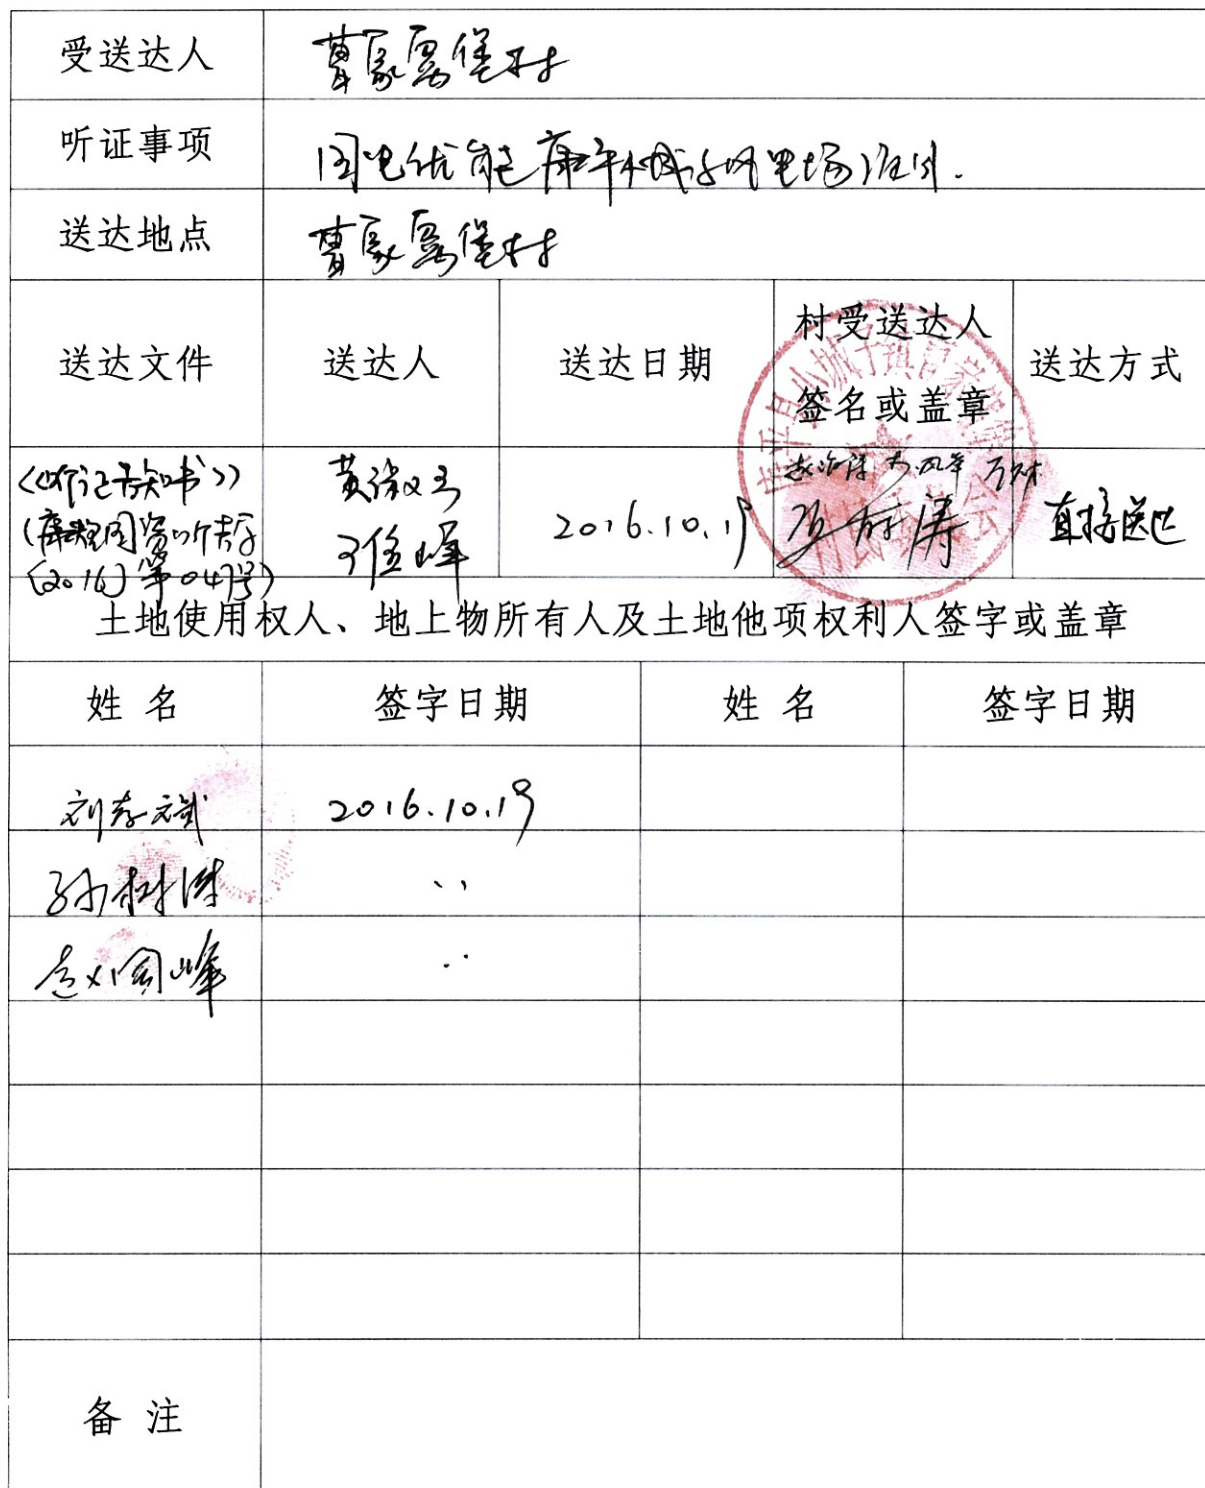 受送达人 曹家窝堡村
听证事项 国电优能康平小城子风电场项目.
送达地点 曹家窝堡村
送达文件 送达人 送达日期 村受送达人 签名或盖章 送达方式
《听证告知书》
(康平国资听告字
(2016)第047号)
2016.10.19
直接送达
土地使用权人、地上物所有人及土地他项权利人签字或盖章
姓 名 签字日期 姓 名 签字日期
2016.10.19
孙树洪 〃
〃
备 注